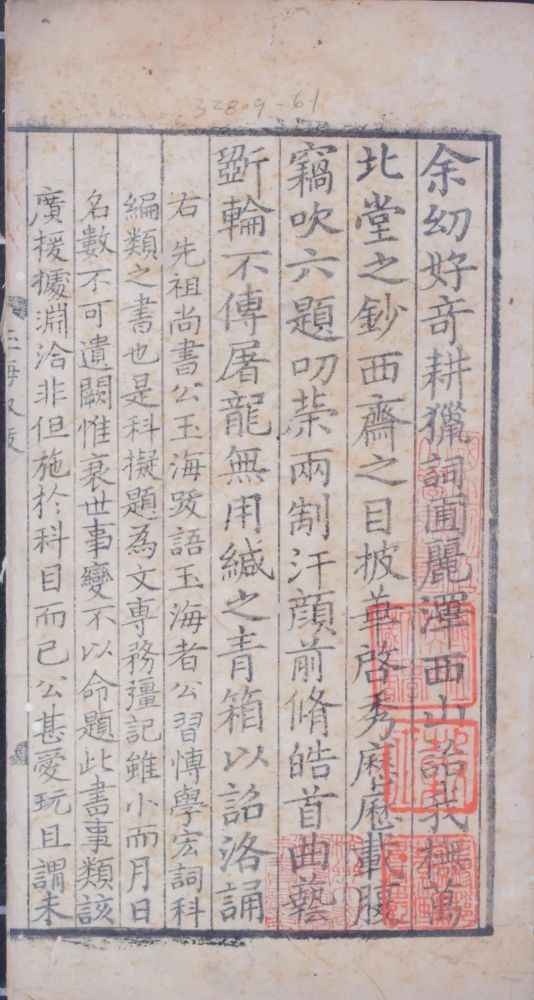 32809-61
余幼好奇耕獵詞圃麗澤西山詔我樵蒐
北堂之鈔西齋之目披華啓秀歷歷載腹
竊吹六題叨榮兩制汗顏前脩皓首曲藝
斲輪不傳屠龍無用緘之青箱以詔洛誦
右先祖尚書公玉海跋語玉海者公習愽學宏詞科
編類之書也是科擬題為文專務彊記雖小而月日
名數不可遺闕惟衰世事變不以命題此書事類該
廣援據淵洽非但施於科目而已公甚愛玩且謂未
玉海